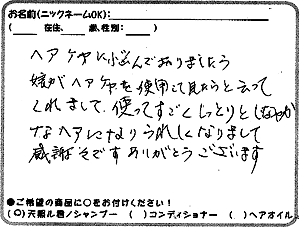 お名前(ニックネームOK):
( 在住、 歳、性別: )
ヘアケアに悩んでおりましたら
嫁がヘアケアを使用して見たらと云って
くれまして、使ってすごくしっとりとしなやか
なヘアになりうれしくなりまして
感謝です ありがとうございます
●ご希望の商品に○をお付けください!
(○)シャンプー ( )コンディショナー ( )ヘアオイル